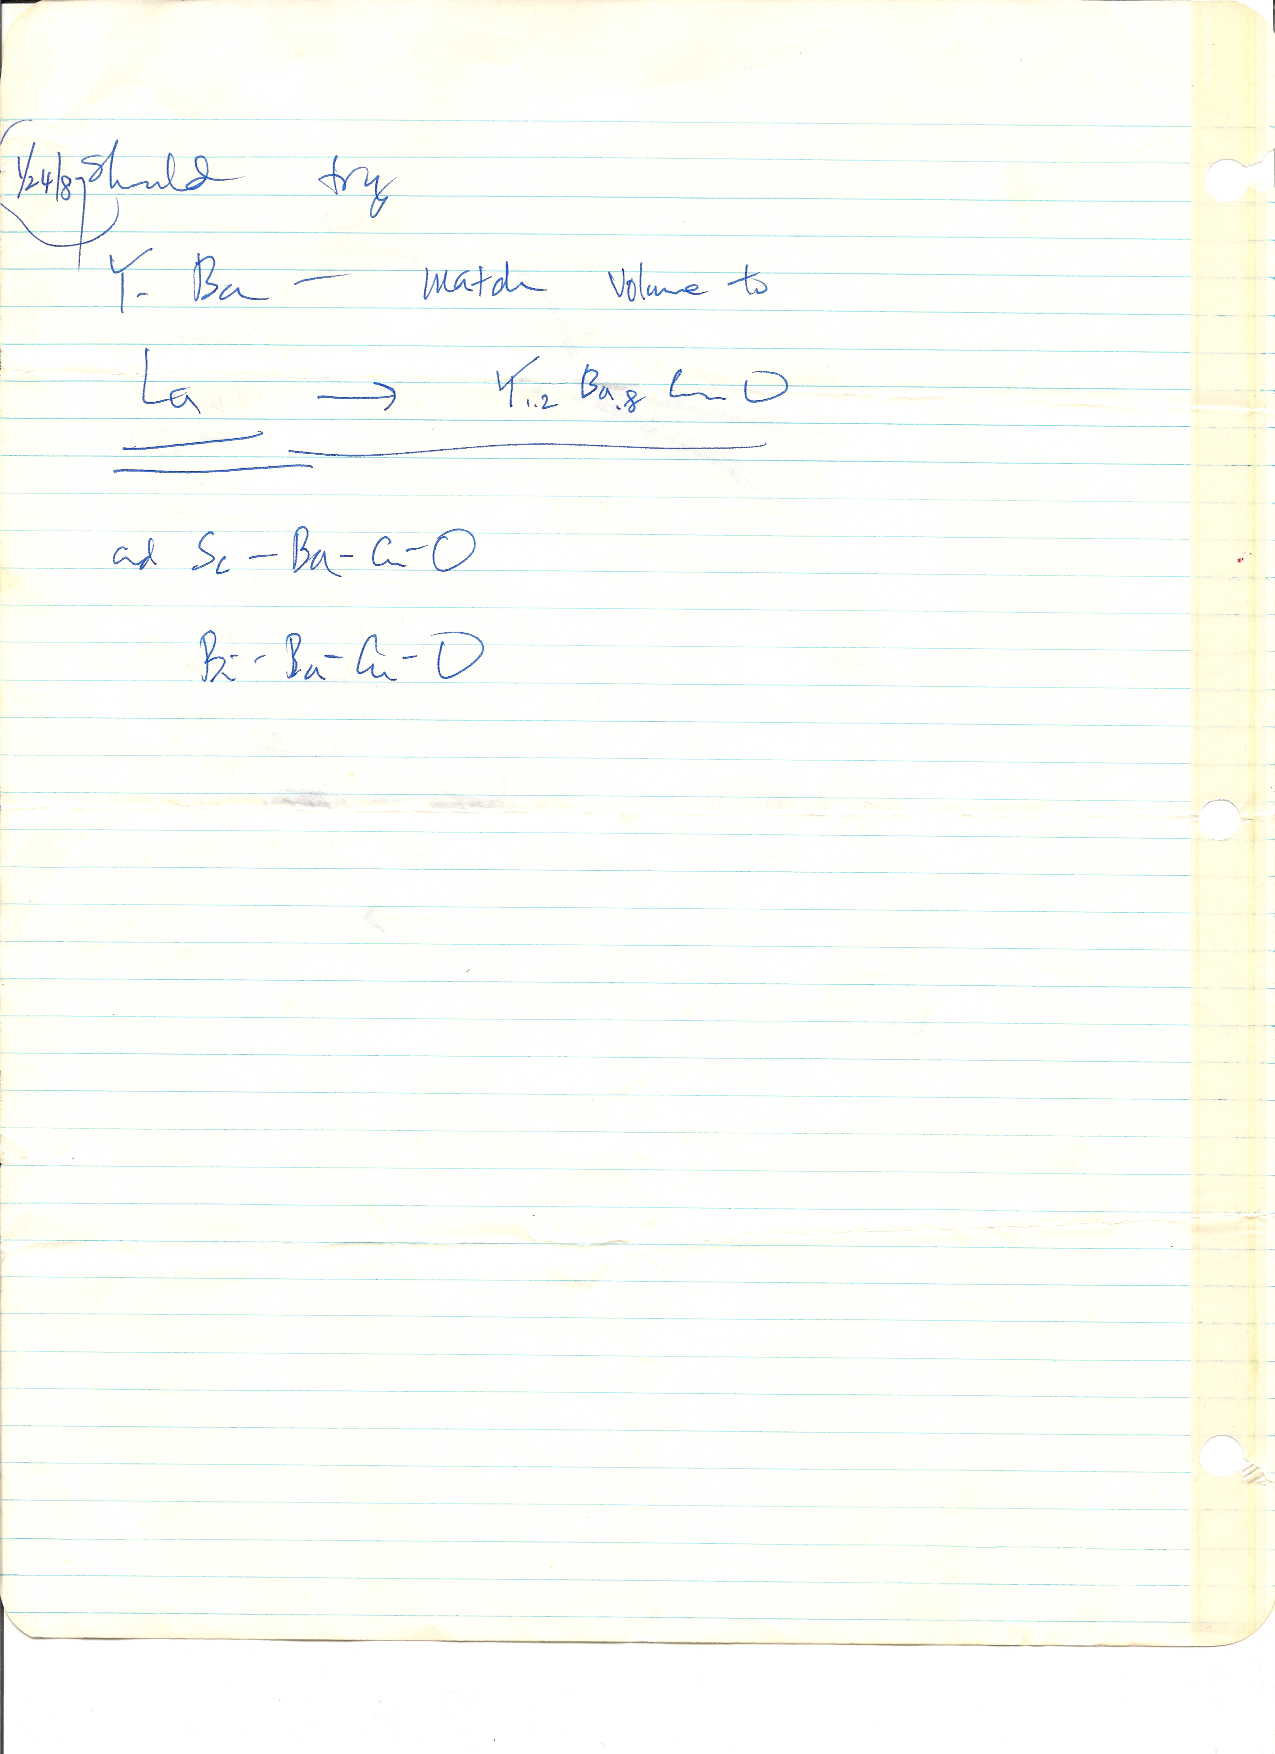 1/24/87 Should try
Y - Ba — match volume to
La → Y1.2 Ba.8 Cu O
and Sc - Ba - Cu - O
Bi - Ba - Cu - O